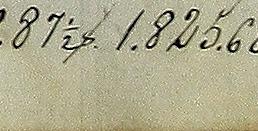 .87½ 1.825.6